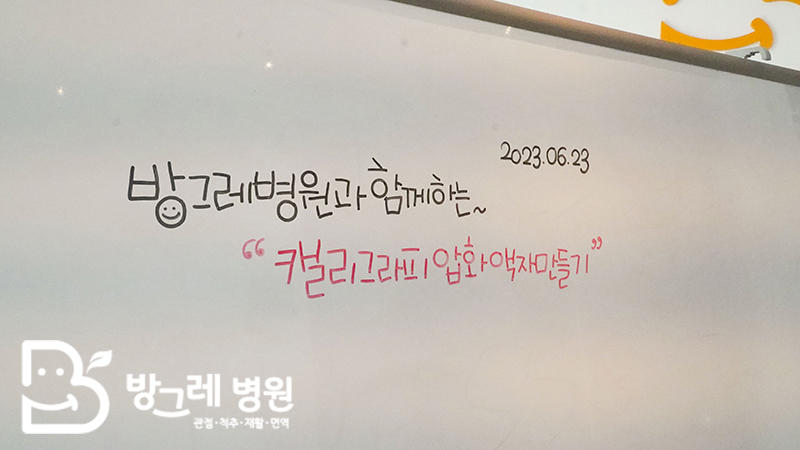 2023.06.23
방그레병원과 함께하는~
“캘리그라피 압화액자만들기”
방그레 병원
관절·척추·재활·면역